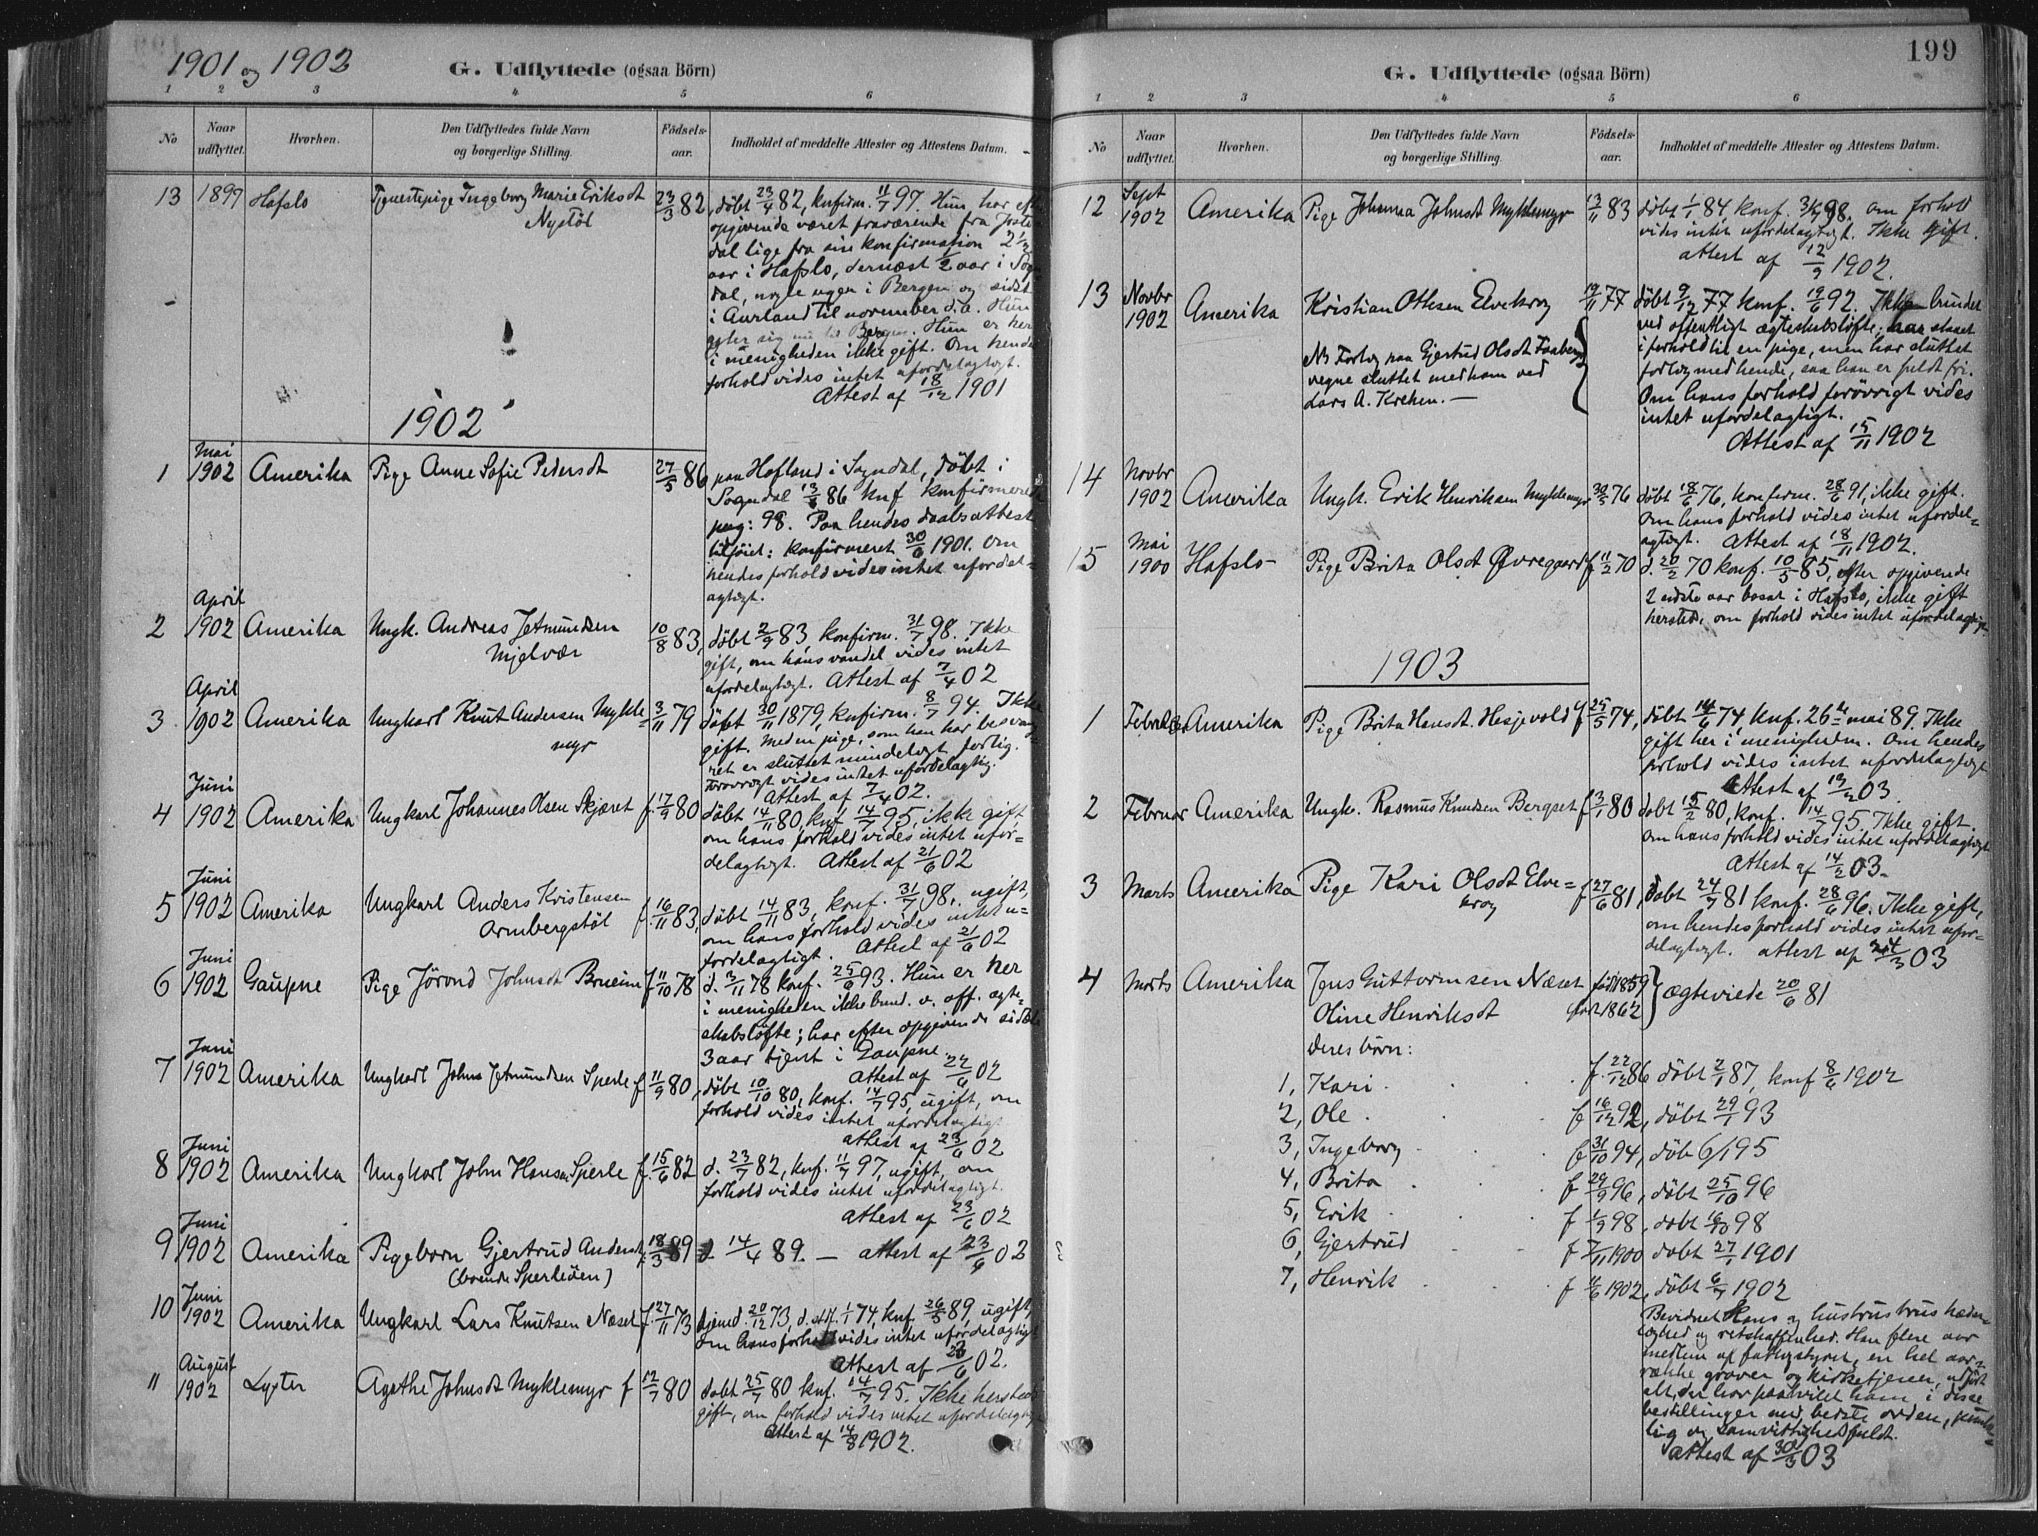 1901 og 1902
G. Udflyttede (ogsaa Börn)
1 2 3 4 5 6
No
Naar udflyttet.
Hvorhen.
Den Udflyttedes fulde Navn og borgerlige Stilling.
Födsels-aar.
Indholdet af meddelte Attester og Attestens Datum.
13 1897 Hafslo Tjenestepige Ingeborg Marie Eriksdt 23/3 82, döbt 23/4 82, konfirm. 11/7 97. Hun har eft
Nystöl
opgivende været fraværende fra Joste
dal lige fra sin konfirmation 2 1/2
aar i Hafslo, dernæst 1/2 aar i Sogn
dal, nogle uger i Bergen og sidst
i Aurland til november d.a. Hun
agter sig nu til Bergen. Hun er her
i menigheden ikke gift. Om hendes
forhold vides intet ufordelagtigt.
Attest af 18/12 1901
1902
1 Mai 1902 Amerika Pige Anne Sofie Pedersdt 27/5 86 paa Hofland i Sogndal, döbt i
Sogndal 13/6 86 knf konfirmeret
98. Paa hendes daabsattest
tilföiet: konfirmeret 30/6 1901. Om
hendes forhold vides intet ufordel=
agtigt.
2 April 1902 Amerika Ungk. Andreas Jetmundsen 10/8 83, döbt 2/9 83, konfirm. 31/7 98. Ikke
Mjelvær
gift, om hans vandel vides intet
ufordelagtigt. Attest af 7/4 02
3 April 1902 Amerika Ungkarl Knut Andersen Mykle= 3/11 79 döbt 30/11 1879, knfirm. 8/7 94. Ikke
myr
gift. Med en pige, som han har besvang=
ret er sluttet mindeligt forlig.
Forövrigt vides intet ufordelagtig.
Attest af 7/4 02.
4 Juni 1902 Amerika Ungkarl Johannes Olsen Skjæret f. 17/9 80 döbt 14/11 80, knf 14/7 95, ikke gift
om hans forhold vides intet ufor=
delagtigt. Attest af 21/6 02
5 Juni 1902 Amerika Ungkarl Anders Kristensen f. 16/11 83, döbt 14/11 83, konf. 31/7 98, ugift,
Ormbergstöl
om hans forhold vides intet u=
fordelagtigt. Attest af 21/6 02
6 Juni 1902 Gaupne Pige Jörond Johnsdt Bruheim f. 11/10 78 d. 3/11 78 konf. 25/6 93. Hun er her
i menigheden ikke bund. v. off. ægte=
skabslöfte; har efter opgivende sidste
3 aar tjent i Gaupne.
Attest af 22/6 02
7 Juni 1902 Amerika Ungkarl Johns Jetmundsen Sperle f. 11/9 80, döbt 10/10 80, konf. 14/7 95, ugift, om
forhold vides intet ufordelagtigt
attest af 23/6 02
8 Juni 1902 Amerika Ungkarl John Hansen Sperle f. 15/6 82 d. 23/7 82, knf. 11/7 97, ugift, om
forhold vides intet ufordelagtigt.
Attest af 23/6 02
9 Juni 1902 Amerika Pigebarn Gjertrud Andersdt 18/3 89 d. 14/4 89. — attest af 23/6 02
(boende Sperleöen)
10 Juni 1902 Amerika Ungkarl Lars Knutsen Næset f. 27/11 73 hjemd. 20/12 73, d. stf. 1/1 74, knf. 26/5 89, ugift,
om hans forhold vides intet ufordelagtigt
attest af 23/6 02.
11 August 1902 Lyster Agethe Johnsdt Myklemyr f 12/7 80 döbt 25/7 80 knf. 14/7 95. Ikke hersteds
gift, om forhold vides intet ufordelagtigt
Attest af 14/8 1902.
199
G. Udflyttede (ogsaa Börn)
1 2 3 4 5 6
No
Naar udflyttet.
Hvorhen.
Den Udflyttedes fulde Navn og borgerlige Stilling.
Födsels-aar.
Indholdet af meddelte Attester og Attestens Datum.
12 Sept 1902 Amerika Pige Johanna Johnsdt Myklemyr 13/11 83 döbt 1/1 84, konf. 31/7 98. om forhold
vides intet ufordelagtigt. Ikke gift.
attest af 12/9 1902.
13 Novbr 1902 Amerika Kristian Othesen Elvekrog 19/11 77 döbt 9/12 77 konf. 19/6 92. Ikke bundet
ved offentligt ægteskabslöfte; har staaet
NB Forlig paa Gjertrud Olsdt Faabergs
i forhold til en pige, men har sluttet
vegne sluttet med ham ved
forlig med hende, saa han er fuldt fri.
Lars A. Kreken. —
Om hans forhold forövrigt vides
intet ufordelagtigt.
Attest af 15/11 1902
14 Novbr 1902 Amerika Ungk. Erik Henriksen Myklemyr 30/5 76 döbt 18/6 76, konfirm. 28/6 91, ikke gift.
Om hans forhold vides intet ufordel=
agtigt. Attest af 18/11 1902.
15 Mai 1900 Hafslo- Pige Brita Olsdt Øvregaard f 11/2 70 d. 20/2 70 konf. 10/5 85, efter opgivende
2 sidste aar bosat i Hafslo, ikke gift
hersteds, om forhold vides intet ufordelagtigt
1903
1 Februar Amerika Pige Brita Hensdt. Hesjevold f 25/5 74, döbt 14/6 74, knf. 26de mai 89. Ikke
gift her i menigheden. Om hendes
forhold vides intet ufordelagtigt
Attest af 13/2 03.
2 Februar Amerika Ungk. Rasmus Knudsen Bergset f 3/1 80 döbt 15/2 80, konf. 14/7 95, Ikke gift.
om hans forhold vides intet ufordelagtigt
Attest af 14/2 03.
3 Marts Amerika Pige Kari Olsdt Elve= f 27/6 81, Döbt 24/7 81 konf. 28/6 96. Ikke gift,
krog
om hendes forhold vides intet ufor=
delagtigt. attest af 24/3 03
4 Marts Amerika Jens Guttormsen Næset född 1859 } ægteviede 20/6 81
Oline Henriksdt född 1862
Deres börn:
1, Kari . f. 22/12 86 döbt 2/1 87, konf 8/6 1902
2, Ole . f 16/12 92, döbt 29/1 93
3, Ingeborg . f 31/10 94, döb 6/1 95
4, Brita . f 29/9 96, döbt 25/10 96
5, Erik . f 1/9 98, döbt 16/10 98
6, Gjertrud . f 7/11 1900 döbt 27/1 1901
7, Henrik . f 11/6 1902, döbt 6/7 1902
Bevidnet Hans og hustrus brushæder=
lighed og retskaffenhed. Han flere aar
medlem af fattigstyret, en hel aar=
række graver og kirketjener, udfört
alt, der har paahvilet ham i disse
bestillinger med bedste orden, punkt=
lig og samvittighedsfuldt.
Attest af 30/3 03